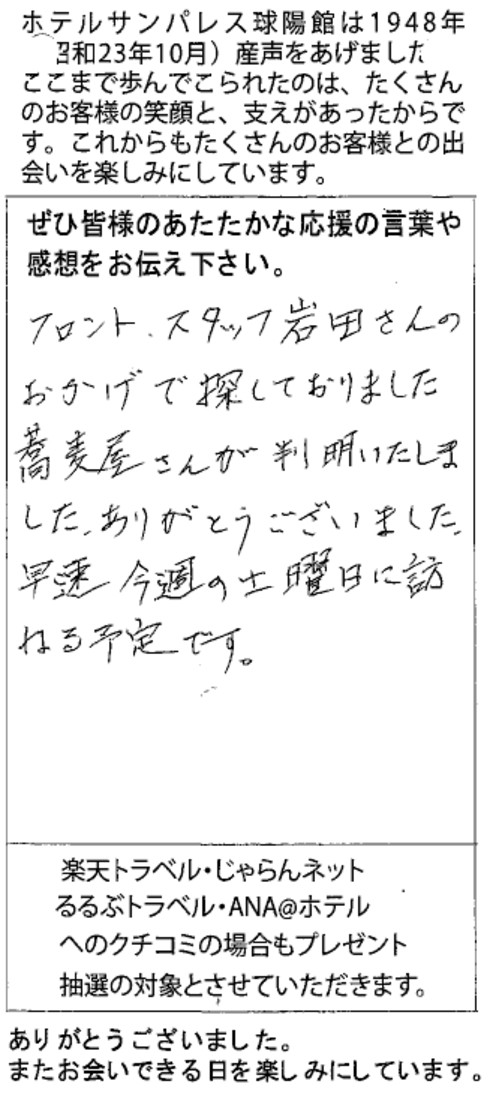 ホテルサンパレス球陽館は1948年
昭和23年10月）産声をあげました
ここまで歩んでこられたのは、たくさん
のお客様の笑顔と、支えがあったからで
す。これからもたくさんのお客様との出
会いを楽しみにしています。
ぜひ皆様のあたたかな応援の言葉や
感想をお伝え下さい。
フロント、スタッフ岩田さんの
おかげで探しておりました
蕎麦屋さんが判明いたしま
した。ありがとうございました。
早速今週の土曜日に訪
ねる予定です。
楽天トラベル・じゃらんネット
るるぶトラベル・ANA@ホテル
へのクチコミの場合もプレゼント
抽選の対象とさせていただきます。
ありがとうございました。
またお会いできる日を楽しみにしています。